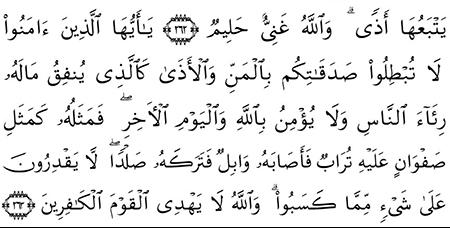 يَتْبَعُهَآ أَذًى ۗ وَٱللَّهُ غَنِىٌّ حَلِيمٌ ﴿٢٦٣﴾ يَـٰٓأَيُّهَا ٱلَّذِينَ ءَامَنُوا۟
لَا تُبْطِلُوا۟ صَدَقَـٰتِكُم بِٱلْمَنِّ وَٱلْأَذَىٰ كَٱلَّذِى يُنفِقُ مَالَهُۥ
رِئَآءَ ٱلنَّاسِ وَلَا يُؤْمِنُ بِٱللَّهِ وَٱلْيَوْمِ ٱلْـَٔاخِرِ ۖ فَمَثَلُهُۥ كَمَثَلِ
صَفْوَانٍ عَلَيْهِ تُرَابٌ فَأَصَابَهُۥ وَابِلٌ فَتَرَكَهُۥ صَلْدًا ۖ لَّا يَقْدِرُونَ
عَلَىٰ شَىْءٍ مِّمَّا كَسَبُوا۟ ۗ وَٱللَّهُ لَا يَهْدِى ٱلْقَوْمَ ٱلْكَـٰفِرِينَ ﴿٢٦٤﴾